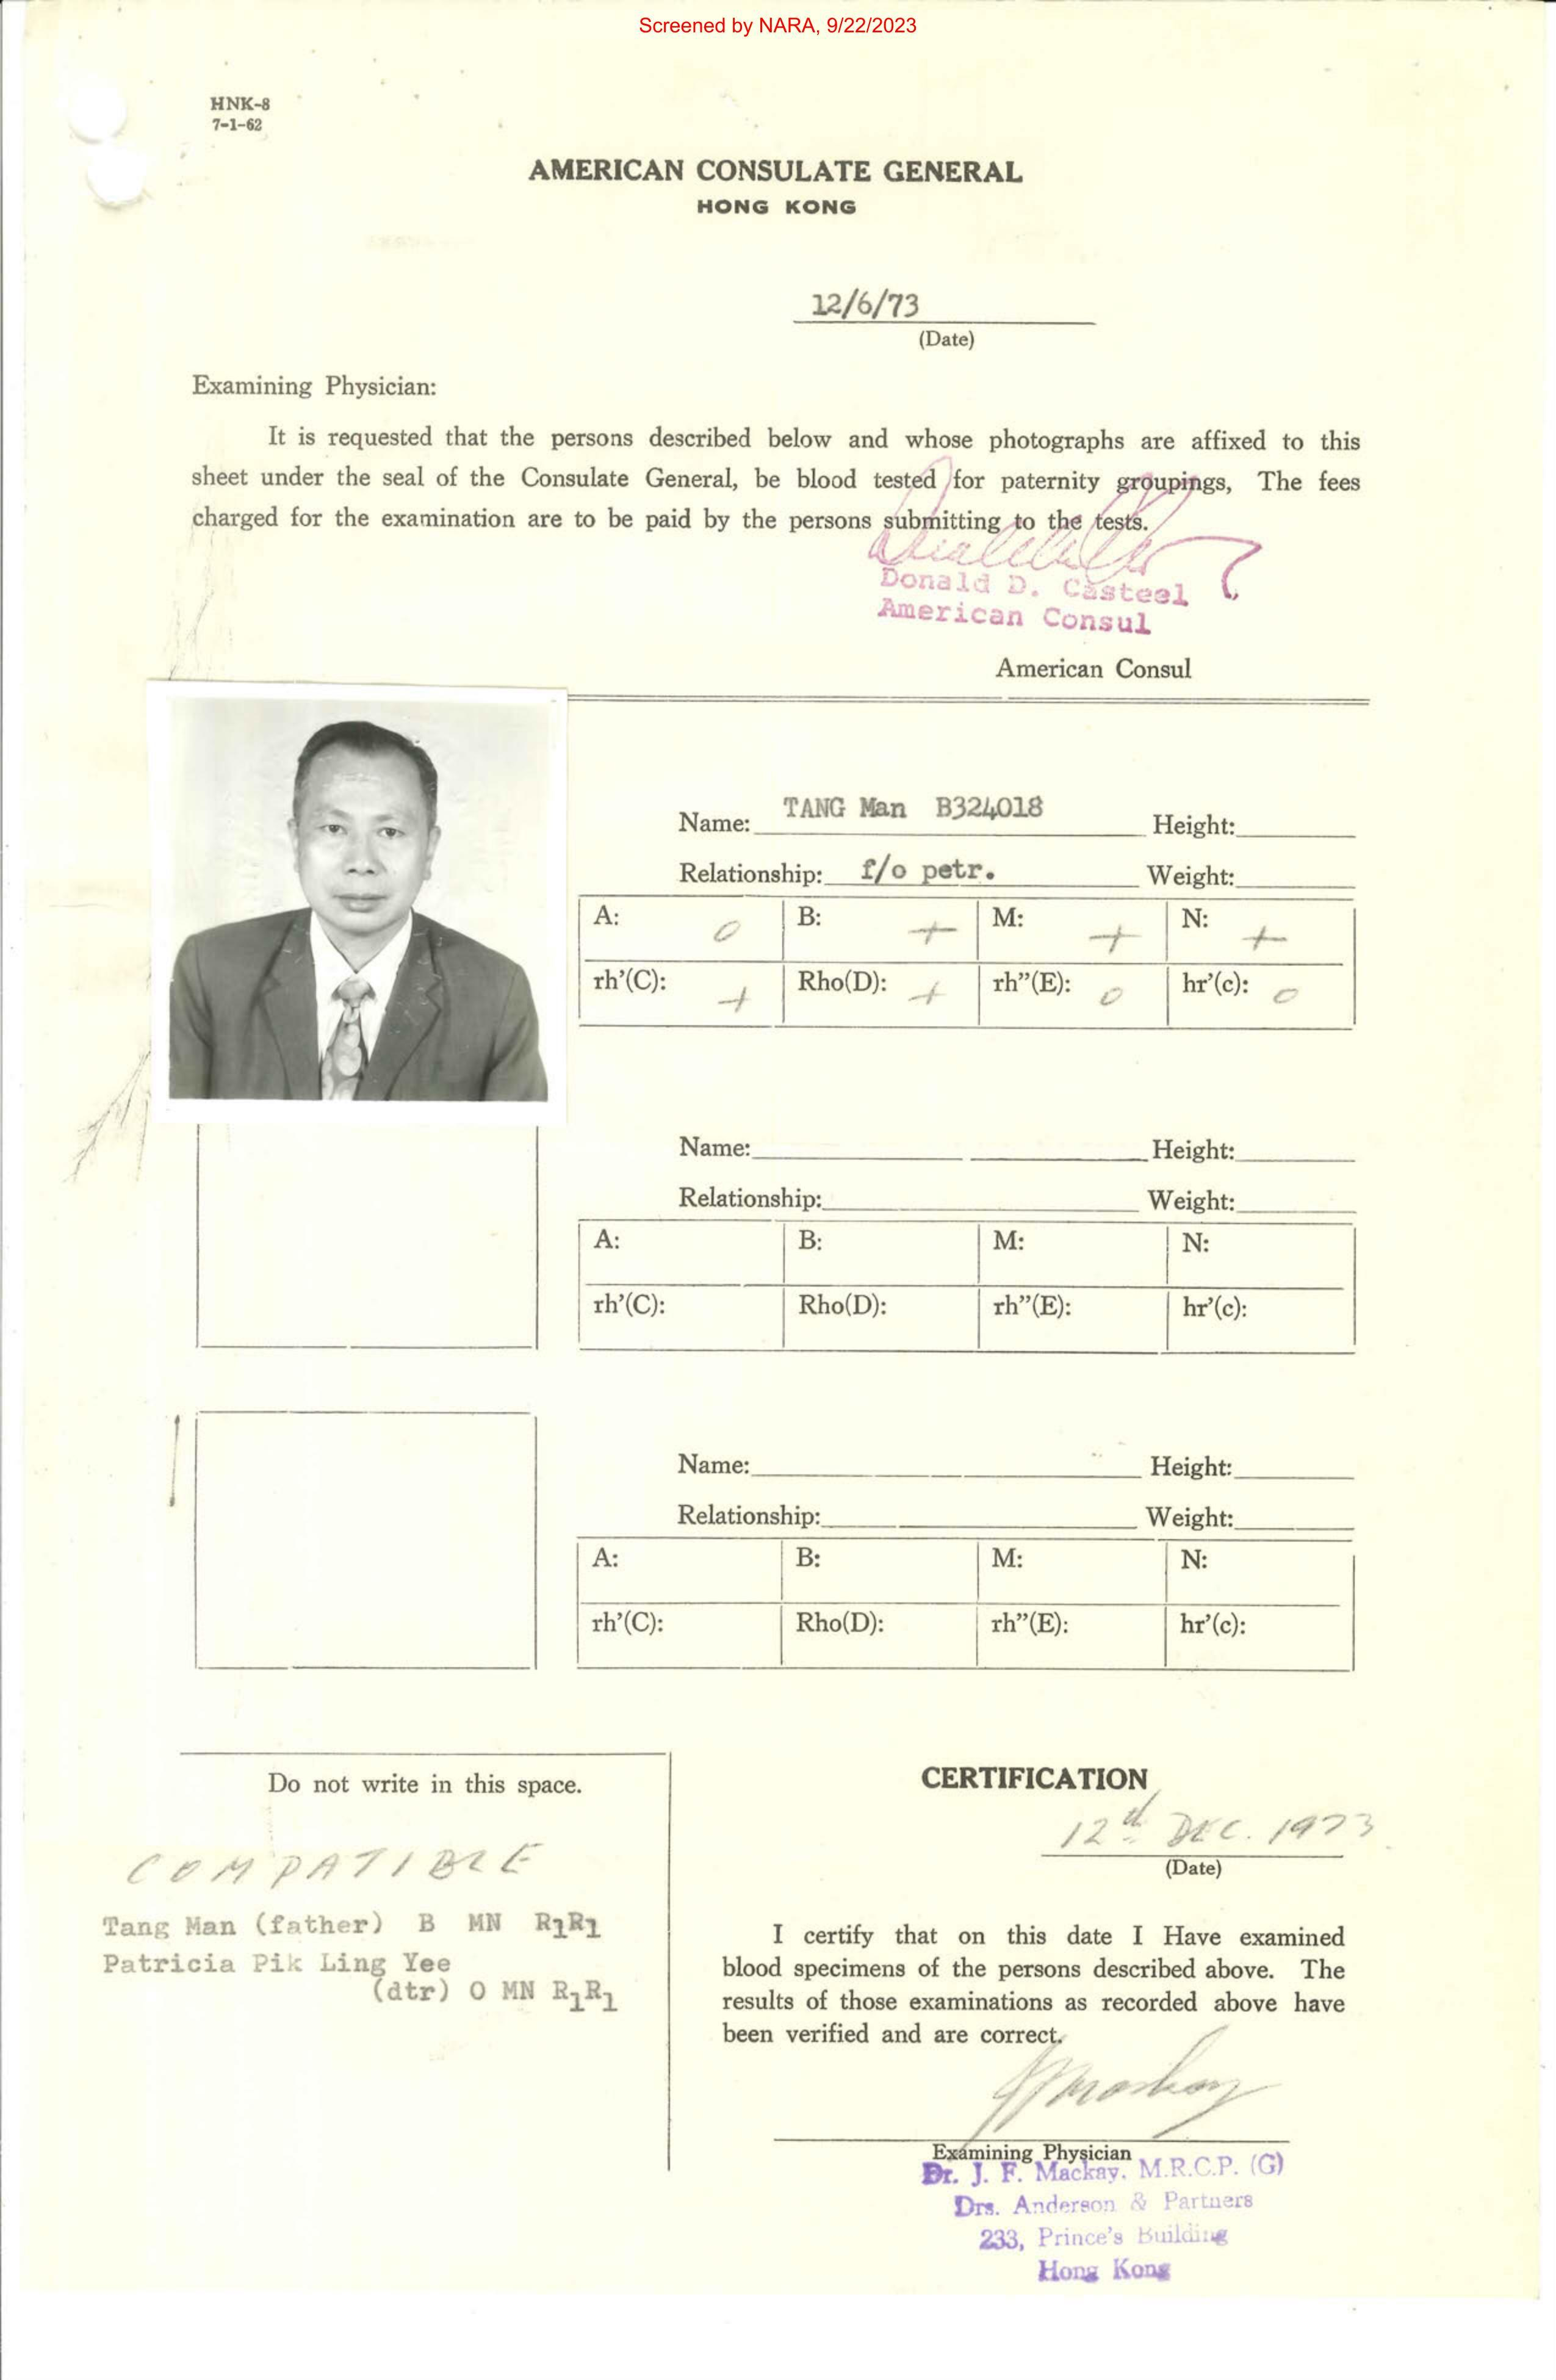 Screened by NARA, 9/22/2023
HNK-8
7-1-62
AMERICAN CONSULATE GENERAL
HONG KONG
12/6/73
(Date)
Examining Physician:
It is requested that the persons described below and whose photographs are affixed to this
sheet under the seal of the Consulate General, be blood tested for paternity groupings, The fees
charged for the examination are to be paid by the persons submitting to the tests.
Donald D. Casteel
American Consul
American Consul
Name: TANG Man B324018 Height:
Relationship: f/o petr. Weight:
A: O B: + M: + N: +
rh'(C): + Rho(D): + rh"(E): O hr'(c): O
Name: Height:
Relationship: Weight:
A: B: M: N:
rh'(C): Rho(D): rh"(E): hr'(c):
Name: Height:
Relationship: Weight:
A: B: M: N:
rh'(C): Rho(D): rh"(E): hr'(c):
Do not write in this space.
COMPATIBLE
Tang Man (father) B MN R1R1
Patricia Pik Ling Yee
(dtr) O MN R1R1
CERTIFICATION
12th DEC. 1973
(Date)
I certify that on this date I Have examined
blood specimens of the persons described above. The
results of those examinations as recorded above have
been verified and are correct.
Examining Physician
Dr. J. F. Mackay, M.R.C.P. (G)
Drs. Anderson & Partners
233, Prince's Building
Hong Kong